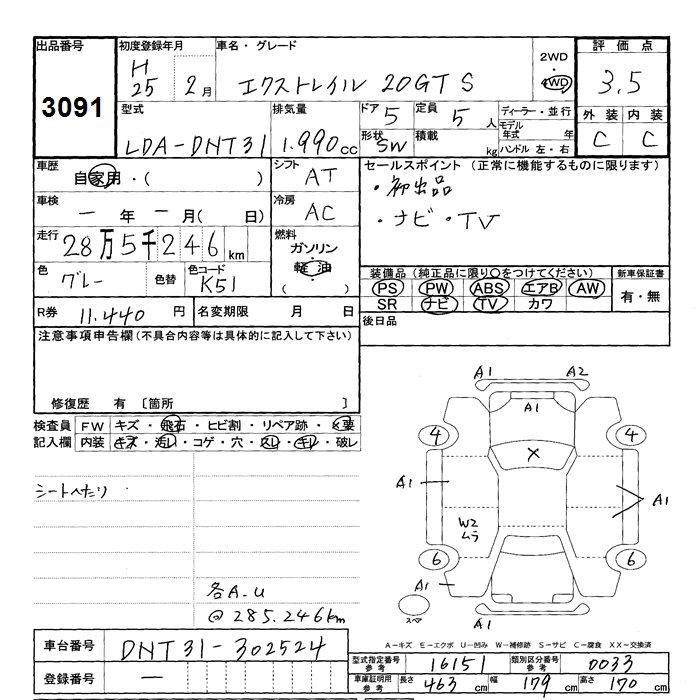 出品番号 初度登録年月 車名・グレード 評価点
3091 H25 2月 エクストレイル 20GT S 2WD・4WD 3.5
型式 排気量 ドア 5 定員 5人 ディーラー・並行 外装 内装
LDA-DNT31 1.990cc 形状 SW 積載 kg モデル年式 年 ハンドル 左・右 C C
車歴 自家用・( ) シフト AT セールスポイント (正常に機能するものに限ります)
・初出品
車検 一年一月( 日) 冷房 AC ・ナビ・TV
走行 28万5千246km 燃料 ガソリン・軽油・( )
色 グレー 色替 色コード K51 装備品(純正品に限り○をつけてください) 新車保証書
PS PW ABS エアB AW 有・無
SR ナビ TV カワ
R券 11.440円 名変期限 月 日 後日品
注意事項申告欄(不具合内容等は具体的に記入して下さい)
修復歴 有 〔箇所 〕
検査員 FW キズ・飛石・ヒビ割・リペア跡・×要
記入欄 内装 キズ・汚レ・コゲ・穴・スレ・キレ・破レ
A1 A2
A1
4 4
X
シートへたり A1 A1
W2
ムラ
6 6
各A.U A1
@285.246km スペア A1
車台番号 DNT31-302524 A-キズ E-エクボ U-凹み W-補修跡 S-サビ C-腐食 XX-交換済
登録番号 一 型式指定番号 参考 16151 類別区分番号 参考 0033
車庫証明用 参考 長さ 463cm 幅 179cm 高さ 170cm